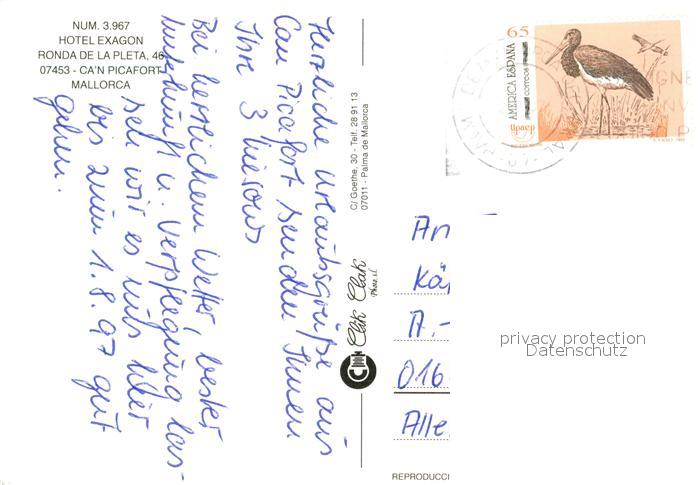 NUM. 3.967
HOTEL EXAGON
RONDA DE LA PLETA, 46
07453 - CA'N PICAFORT
MALLORCA
Herzliche Urlaubsgrüße aus
Can Picafort senden Ihnen
Ihre 3
Bei herrlichem Wetter, bester
u. Verpflegung las-
sen wir es uns hier
bis zum 1.8.97 gut
gehen.
C/ Goethe, 30 - Telf. 28 91 13
07011 - Palma de Mallorca
Clik Clak
REPRODUCCI
65
AMERICA ESPAÑA
correos
Upaep
An
Kä
A.-
016
Alle
privacy protection
Datenschutz